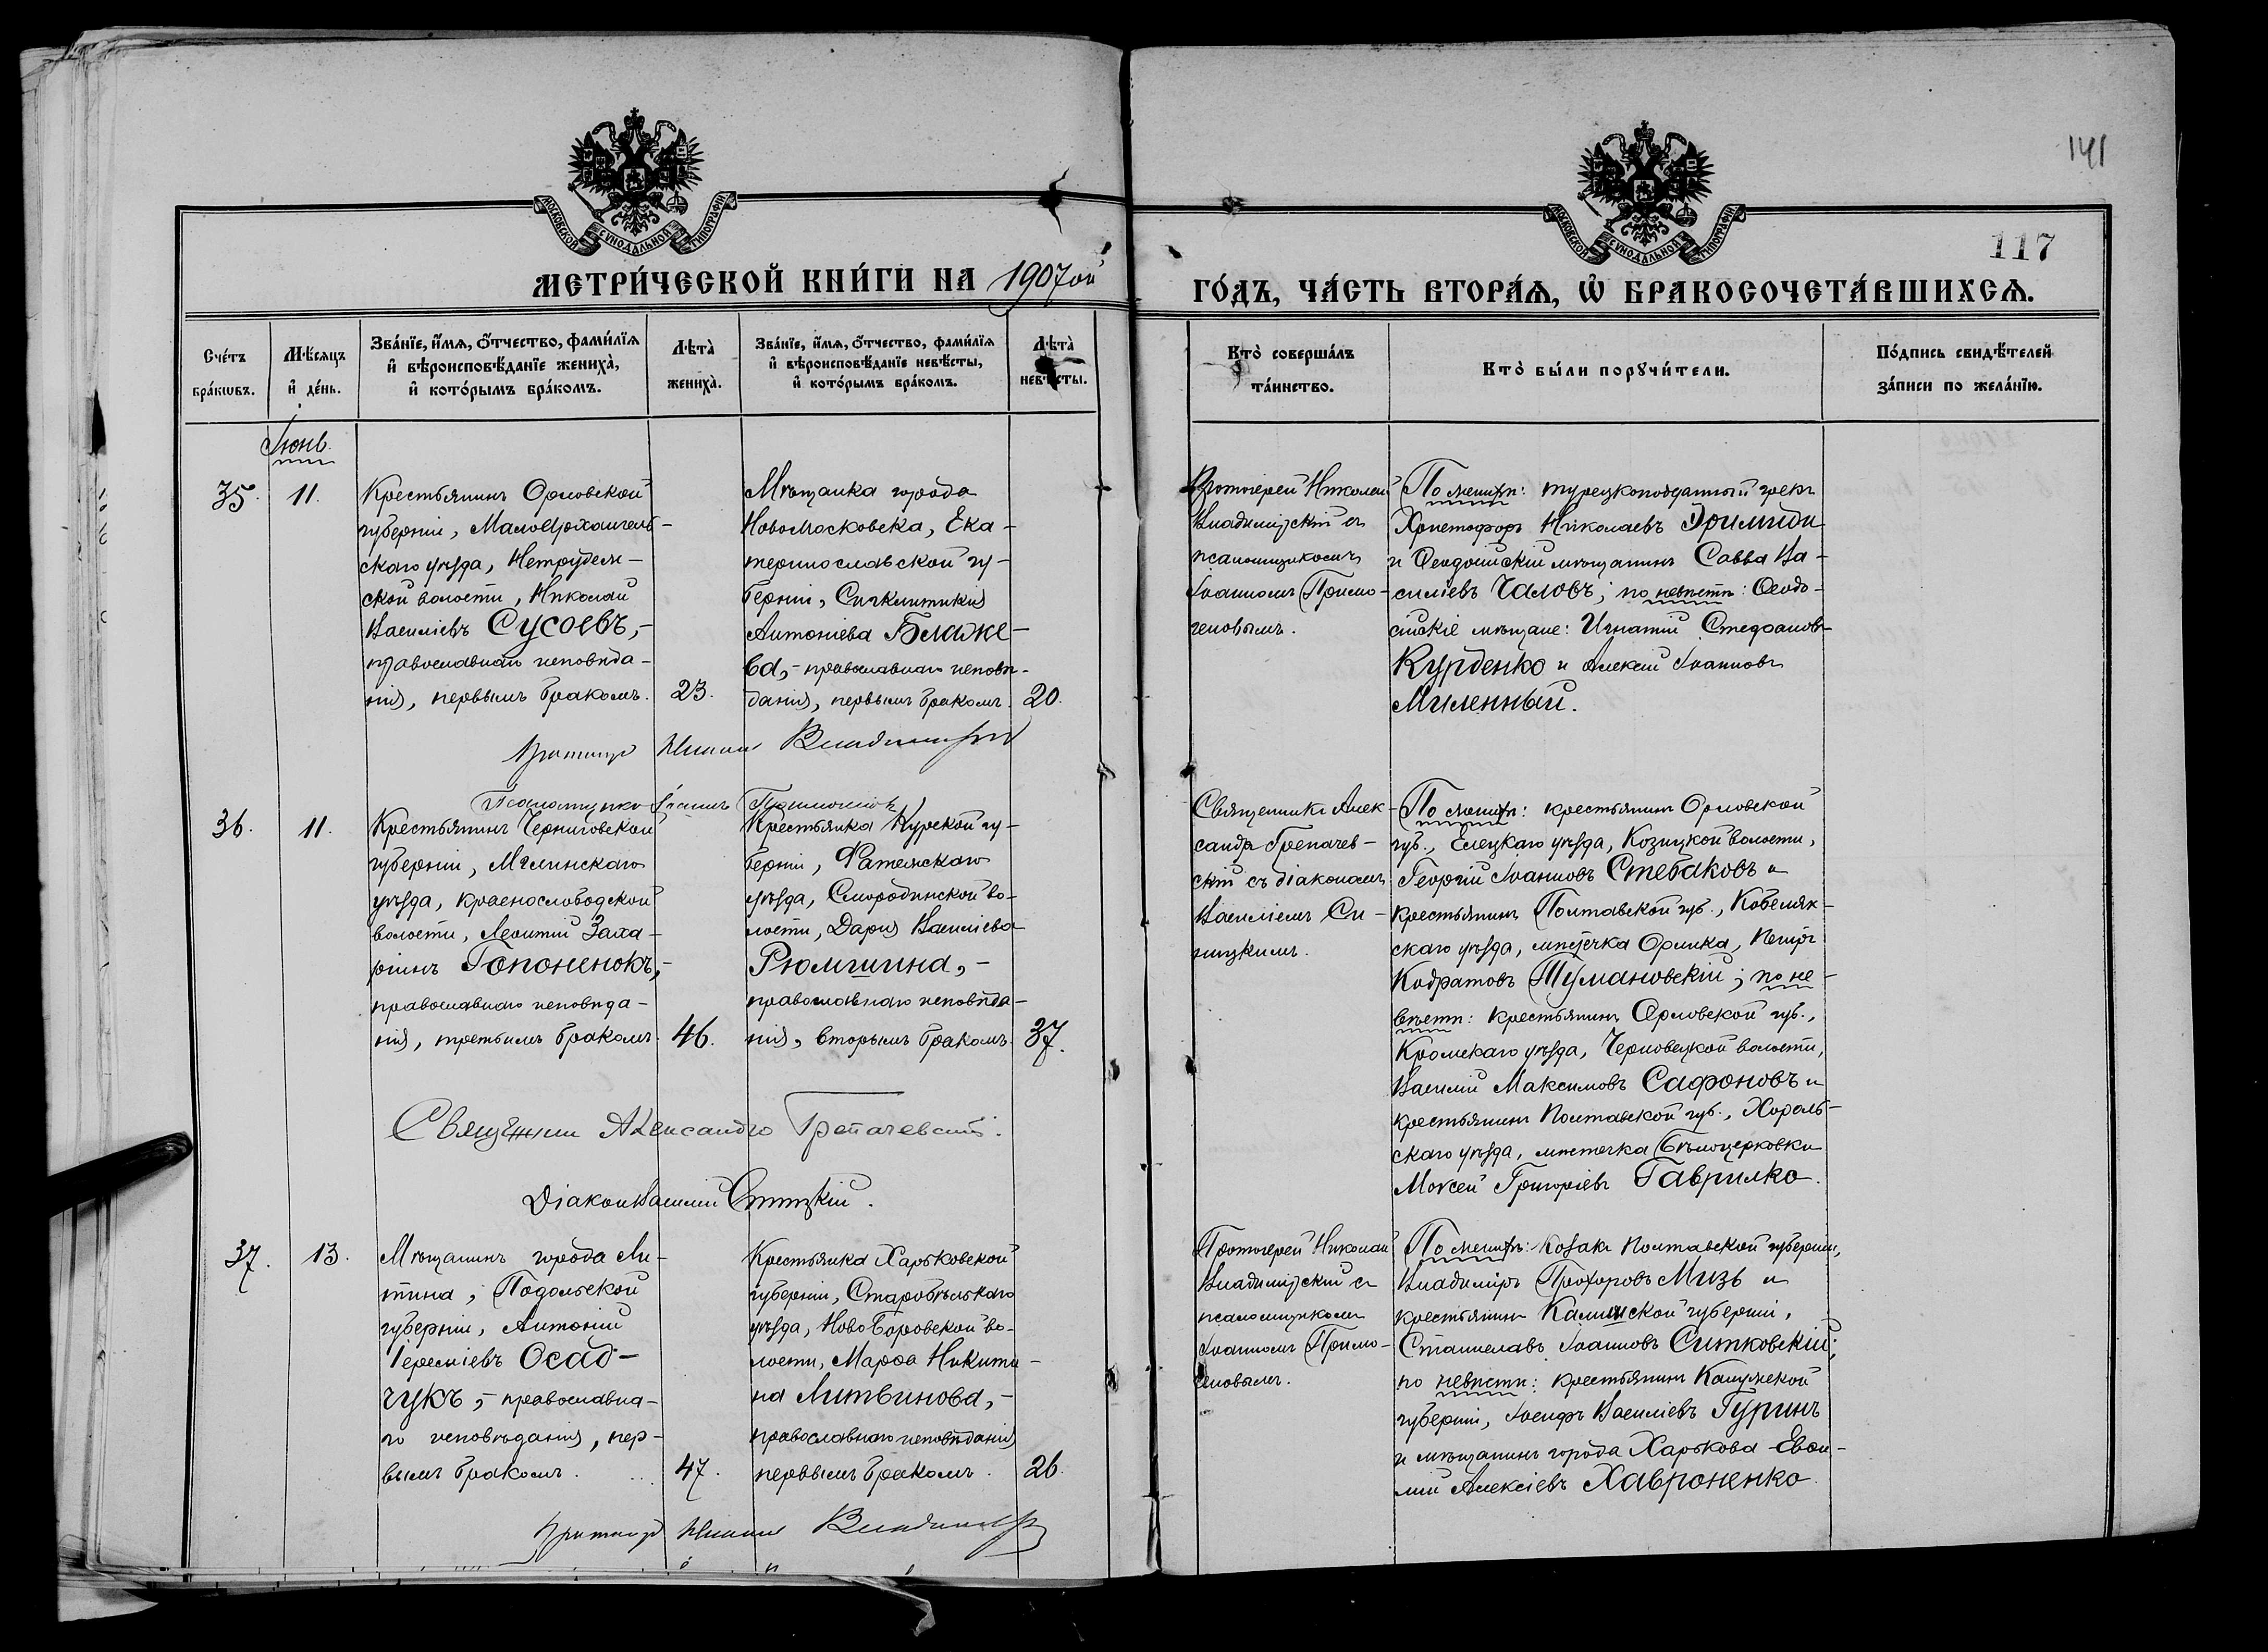 141
117
МОСКОВСКОЙ СѴНОДАЛЬНОЙ ТИПОГРАФІИ
МОСКОВСКОЙ СѴНОДАЛЬНОЙ ТИПОГРАФІИ
МЕТРИ́ЧЕСКОЙ КНИ́ГИ НА 1907ой
ГО́ДЪ, ЧА́СТЬ ВТОРА́Ѧ, Ѡ҆ БРАКОСОЧЕТА́ВШИХСѦ.
Сче́тъ
бра́кѡвъ.
Мѣ́сяцъ
и҆ де́нь.
Зва́нїе, и҆́мѧ, ѻ҆́тчество, фами́лїѧ
и҆ вѣроисповѣ́данїе жениха̀,
и҆ кото́рымъ бра́комъ.
Лѣта̀
жениха̀.
Зва́нїе, и҆́мѧ, ѻ҆́тчество, фами́лїѧ
и҆ вѣроисповѣ́данїе невѣ́сты,
и҆ кото́рымъ бра́комъ.
Лѣта̀
невѣ́сты.
Кто̀ соверша́лъ
та́инство.
Кто̀ бы́ли порꙋчи́тели.
По́дпись свидѣ́телей
за́писи по жела́нїю.
Іюнь.
35.
11.
Крестьянинъ Орловской
губерніи, МалоАрхангель-
скаго уѣзда,
ской волости, Николай
Василіевъ Сусоевъ,-
православнаго исповѣда-
нія, первымъ бракомъ.
23.
Мѣщанка города
НовоМосковска, Ека-
теринославской гу-
берніи, Сигклитикія
Антоніева Блаже-
ва,- православнаго исповѣ-
данія, первымъ бракомъ.
20.
Протоіерей Николай
Владимірскій съ
псаломщикомъ
Іоанномъ Прило-
теновымъ.
По женихѣ: турецкоподданный грекъ
Христофоръ Николаевъ
и Ѳеодосійскій мѣщанинъ Савва Ва-
силіевъ Чаловъ; по невѣстѣ: Ѳеодо-
сійскіе мѣщане: Игнатій Стефановъ
Курденко и Алексій Іоанновъ
Миленный.
Протоіерей Николай Владимірскій
Псаломщикъ Іоаннъ
36.
11.
Крестьянинъ Черниговской
губерніи, Мглинскаго
уѣзда, Краснослободской
волости, Леонтій Заха-
ріинъ Гапоненокъ,-
православнаго исповѣда-
нія, третьимъ бракомъ.
46.
Крестьянка Курской гу-
берніи, Фатежскаго
уѣзда, Смородинской во-
лости, Дарія Василіева
Рюмшина,-
православнаго исповѣда-
нія, вторымъ бракомъ.
37.
Священникъ Алек-
сандръ Грепачев-
скій съ діакономъ
Василіемъ Си-
ницкимъ.
По женихѣ: крестьянинъ Орловской
губ., Елецкаго уѣзда, Козицкой волости,
Георгій Іоанновъ Стебаковъ и
крестьянинъ Полтавской губ., Кобеляк-
скаго уѣзда, мѣстечка Орлика, Петръ
Кодратовъ Тумановскій; по не-
вѣстѣ: крестьянинъ Орловской губ.,
Кромскаго уѣзда, Черновецкой волости,
Василій Максимовъ Сафоновъ и
крестьянинъ Полтавской губ., Хороль-
скаго уѣзда, мѣстечка Бѣлоцерковки
Моѵсей Григоріевъ Гаврилко.
Священникъ Александръ Грепачевскій.
Діаконъ Василій Синицкій.
37.
13.
Мѣщанинъ города Ли-
тина, Подольской
губерніи, Антоній
Іереміевъ Осад-
чукъ,- православна-
го исповѣданія, пер-
вымъ бракомъ.
47.
Крестьянка Харьковской
губерніи, Старобѣльскаго
уѣзда, НовоБоровской во-
лости, Марѳа Никити-
на Литвинова,-
православнаго исповѣданія
первымъ бракомъ.
26.
Протоіерей Николай
Владимірскій съ
псаломщикомъ
Іоанномъ Прило-
теновымъ.
По женихѣ: козакъ Полтавской губерніи,
Владиміръ Прохоровъ Мизь и
крестьянинъ Калишской губерніи,
Станиславъ Іоанновъ Ситковскій;
по невѣстѣ: крестьянинъ Калужской
губерніи, Іосифъ Василіевъ Гуринъ
и мѣщанинъ города Харькова Евѳи-
мій Алексіевъ Хавроненко.
Протоіерей Николай Владимірскій